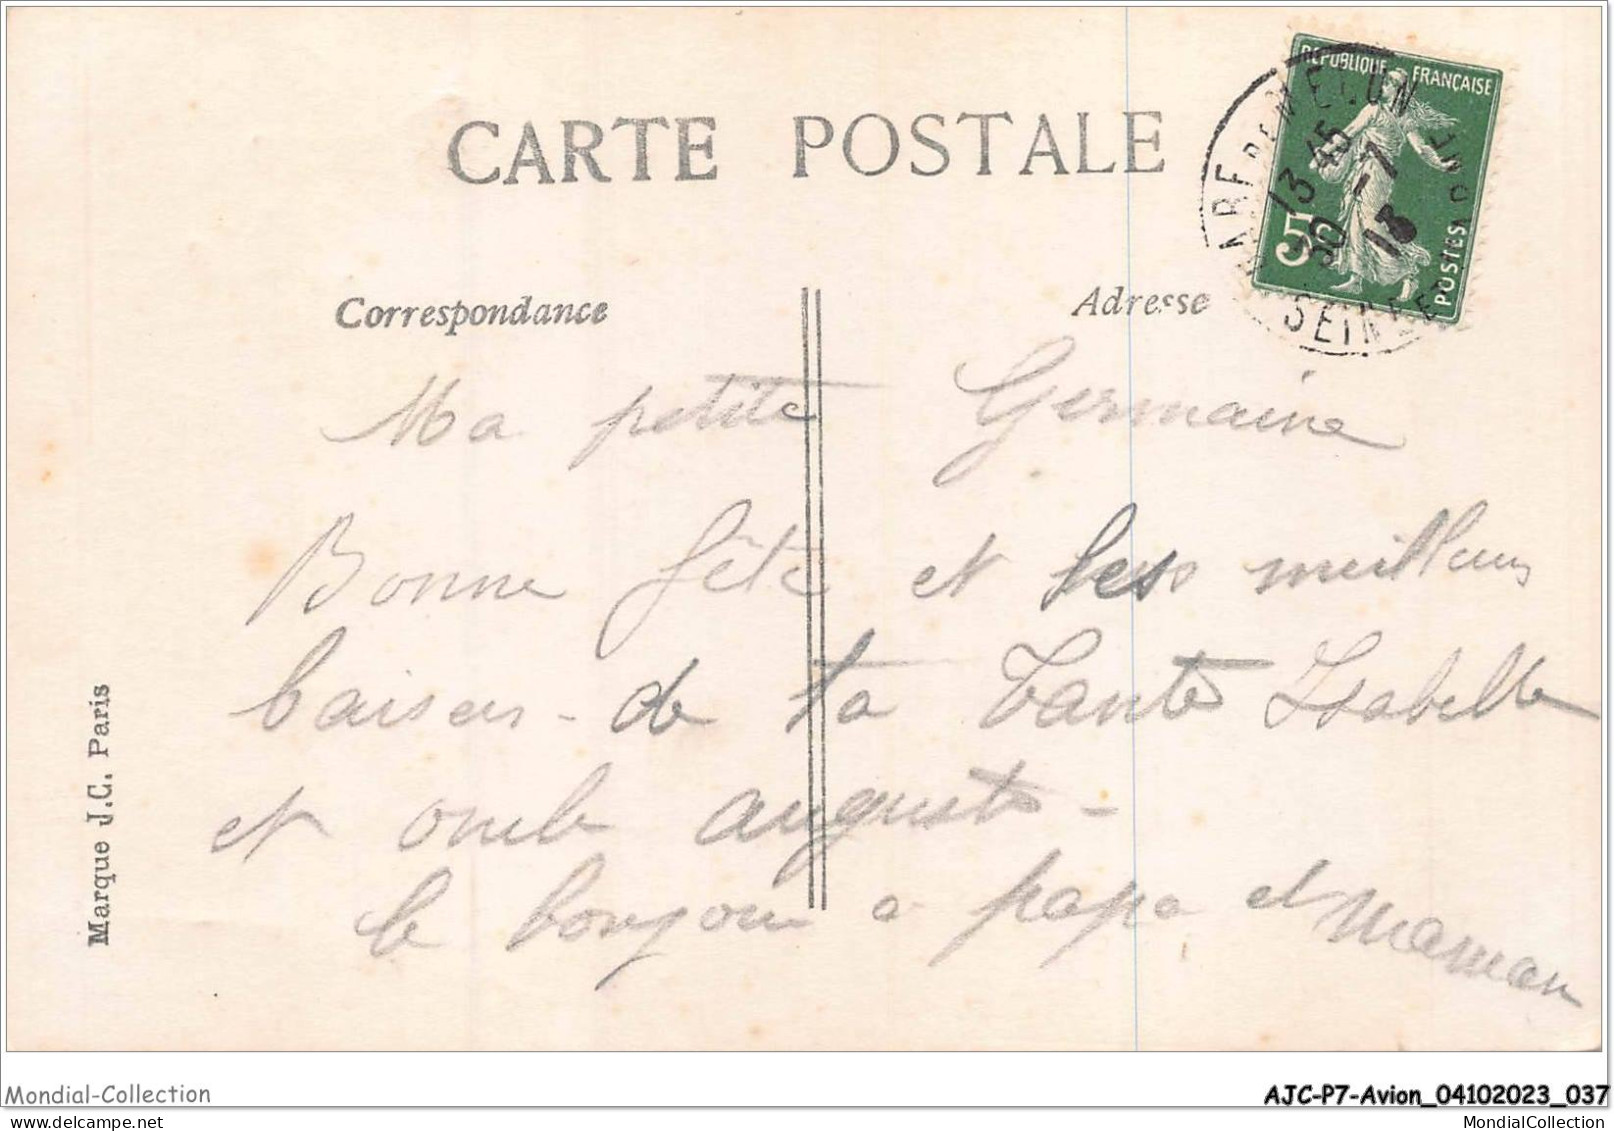 CARTE POSTALE
REPUBLIQUE FRANÇAISE
POSTES
5c
GARE DE MELUN
13 45
30 -7
13
SEINE ET
Correspondance
Adresse
Ma petite Germaine
Bonne fête et les meilleurs
baisers - de ta Tante Isabelle
et oncle auguste -
le bonjour a papa et Maman
Marque J.C. Paris
Mondial-Collection
AJC-P7-Avion_04102023_037
MondialCollection